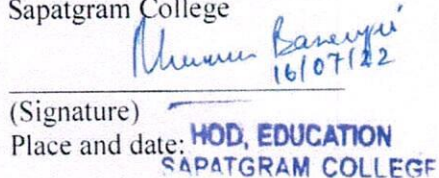 Sapatgram College
Banerjee
16/07/22
(Signature)
Place and date: HOD, EDUCATION
SAPATGRAM COLLEGE